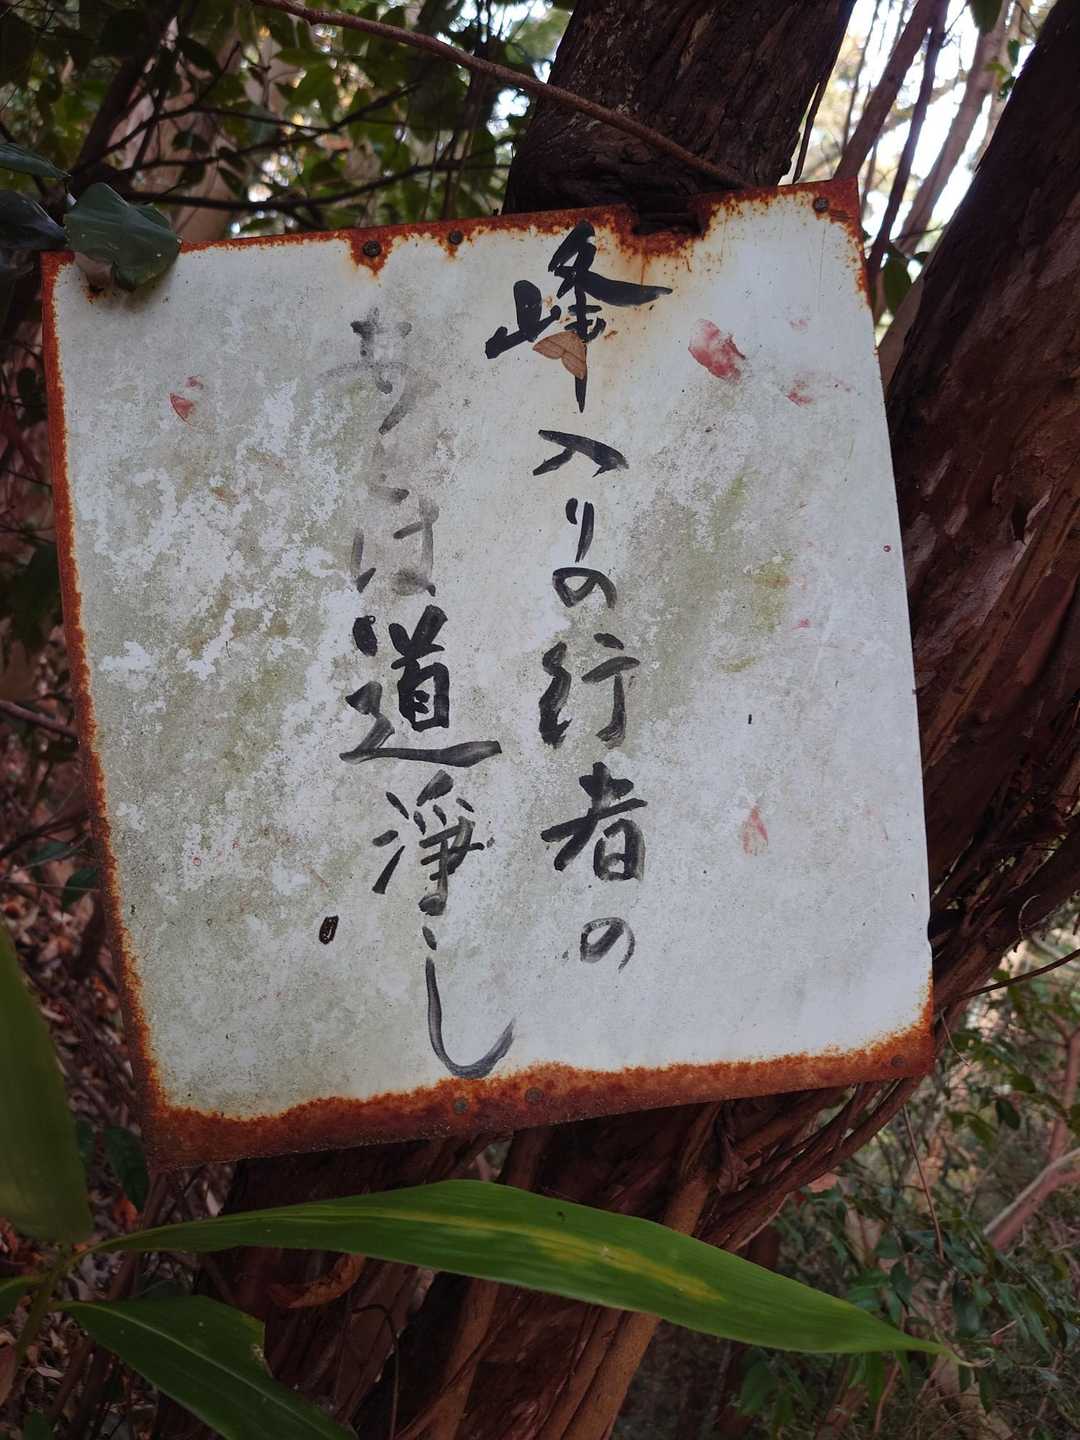 峰入りの行者の
あとは道淨し